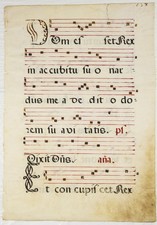 Dum es set Rex
in accubitu su o nar
dus me a de dit o do
rem su a vi tatis. ps̄.
Dixit Dn̄s. aña.
Et con cupis cet Rex